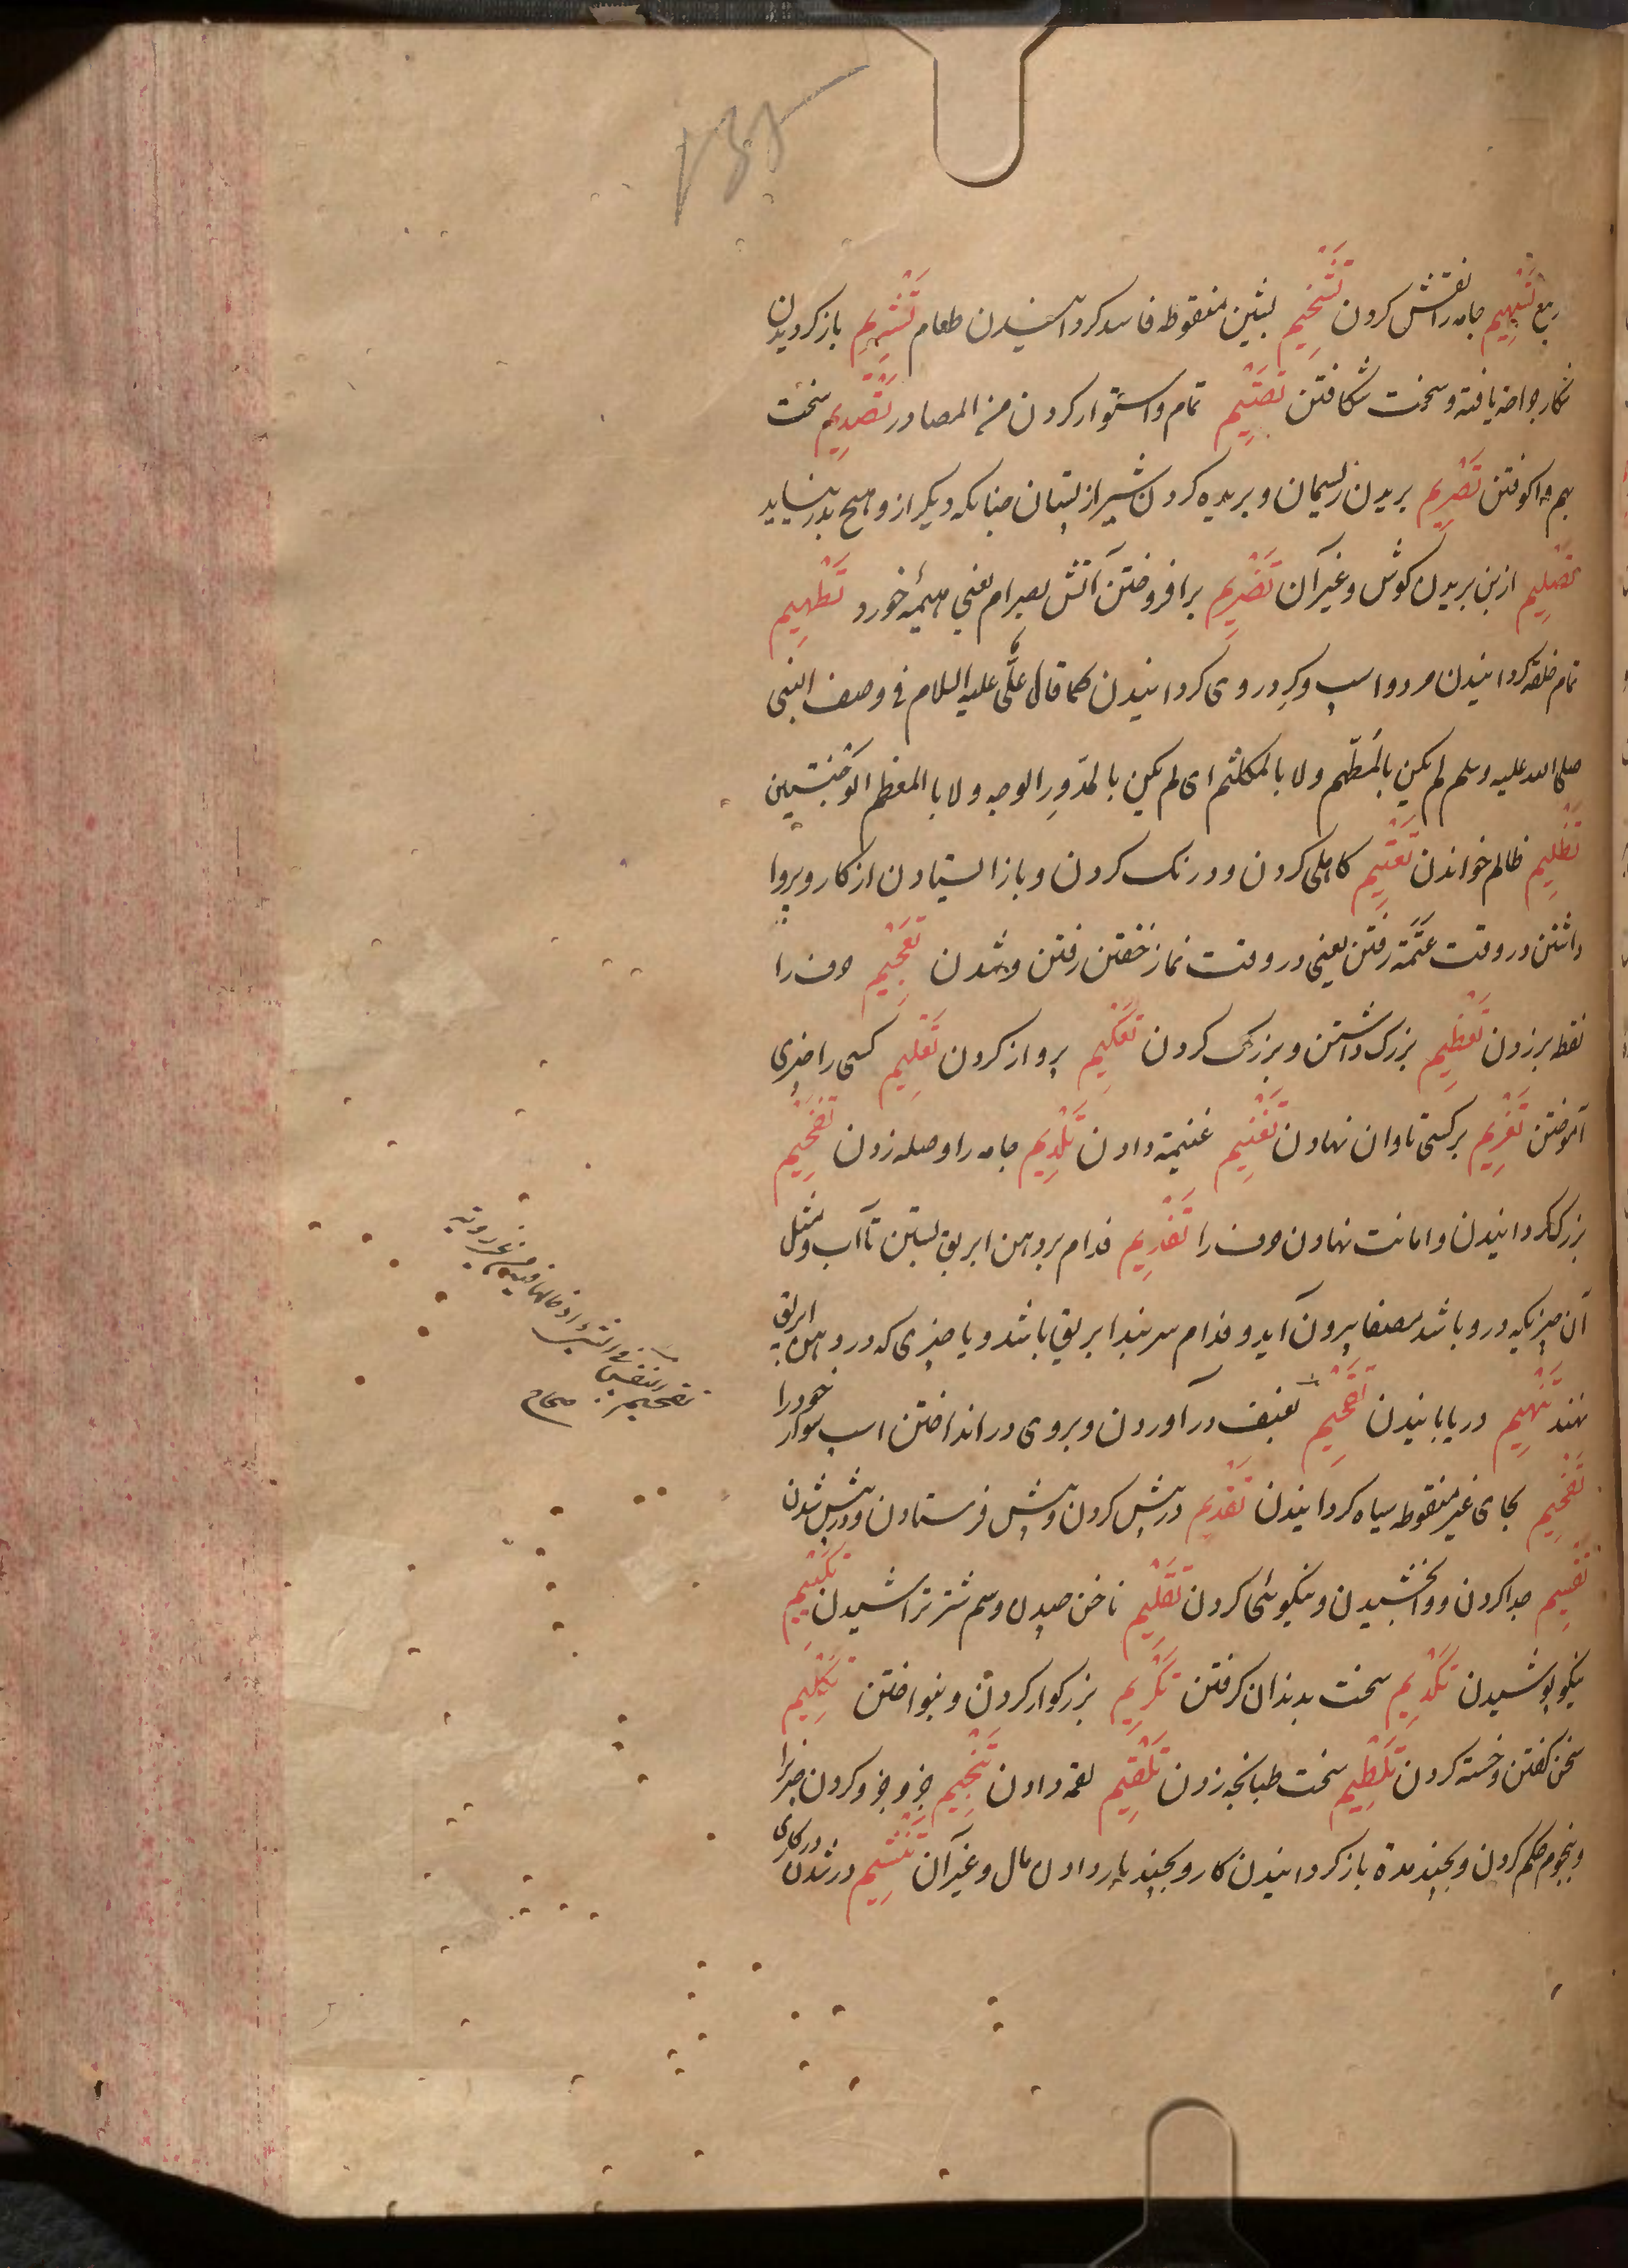 ربع تَسْهِیم جامه را نقش کردن تَشْخِیم بشین منقوطه فاسد کردانیدن طعام تَشْرِیم باز کردیدن
شکار جراحت یافته و سخت شکافتن تَصْتِیم تمام و استوار کردن من المصادر تَصْدِیم سخت
بهم واکوفتن تَصْرِیم بریدن ریسمان و بریده کردن شیر از پستان چنانکه دیکر ازو هیچ بدر نیاید
تَصْلِیم از بن بریدن کوش و غیر آن تَضْرِیم برافروختن آتش بضرام یعنی هیمهٔ خورد تَطْهِیم
تمام خلقه کردانیدن مرد و اسپ و کرد روی کردانیدن کما قال علیّ علیه السلام فی وصف النبی
صلی الله علیه وسلم لم یکن بالمُطَهّم ولا بالمکلثم ای لم یکن بالمدوّر الوجه ولا بالمعظم الوجنتین
تَظْلِیم ظالم خواندن تَعْتِیم کاهلی کردن و درنک کردن و باز ایستادن از کار و بروا
داشتن در وقت عَتَمَة رفتن یعنی در وقت نماز خفتن رفتن و شدن تَعْجِیم حرف را
نقط برزدن تَعْظِیم بزرک داشتن و بزرک کردن تَعْکِیم پرواز کردن تَعْلِیم کسی را چیزی
آموختن تَغْرِیم بر کسی تاوان نهادن تَغْنِیم غنیمة دادن تَلْدِیم جامه را وصله زدن تَفْخِیم
بزرک کردانیدن و امانت نهادن حرف را تَفْدِیم فدام بر دهن ابریق بستن تا آب و مثل
آن چیزیکه درو باشد بصفا بیرون آید و فدام سربند ابریق باشد و یا چیزی که در دهن ابریق
نهند تَفْهِیم دریابانیدن تَقْحِیم بعنف درآوردن و بروی در انداختن اسپ سوار خود را
تَفْحِیم بحای غیر منقوطه سیاه کردانیدن تَقْدِیم در پیش کردن و پیش فرستادن و در پیش شدن
تَقْسِیم جدا کردن و وا بخشیدن و نیکوئی کردن تَقْلِیم ناخن چیدن و سم شتر تراشیدن تَکْتِیم
نیکو پوشیدن تَکْدِیم سخت بدندان کرفتن تَکْرِیم بزرکوار کردن و بنواختن تَکْلِیم
سخن کفتن و خسته کردن تَلْطِیم سخت طبانجه زدن تَلْقِیم لقمه دادن تَنْجِیم جزو جزو کردن چیز را
و بنجوم حکم کردن و بچند مدة باز کردانیدن کار و بچند بار دادن مال و غیر آن تَنْشِیم در شدن در کاری
تقحیم النفس فی الشیء ادخالها فیه من غیر رویة
صحاح